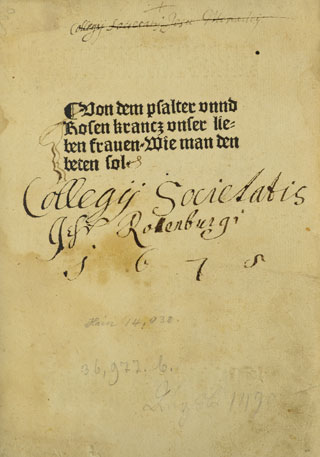 Collegij Societatis Jesu
¶Von dem psalter vnnd
Rosen krancz vnser lie-
ben frauen. Wie man den
beten sol.
Collegij Societatis
Jesu Rottenburgi
1 6 7 5
Hain 14,038.
36,977. b.